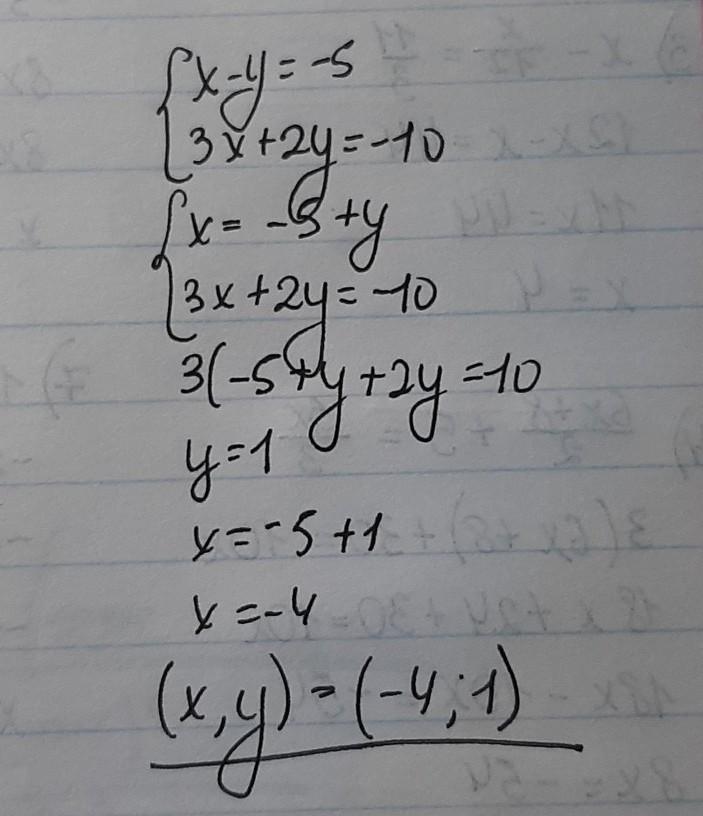 x-y=-5
3x+2y=-10
x=-5+y
3x+2y=-10
3(-5+y+2y=10
y=1
x=-5+1
x=-4
(x,y)=(-4;1)